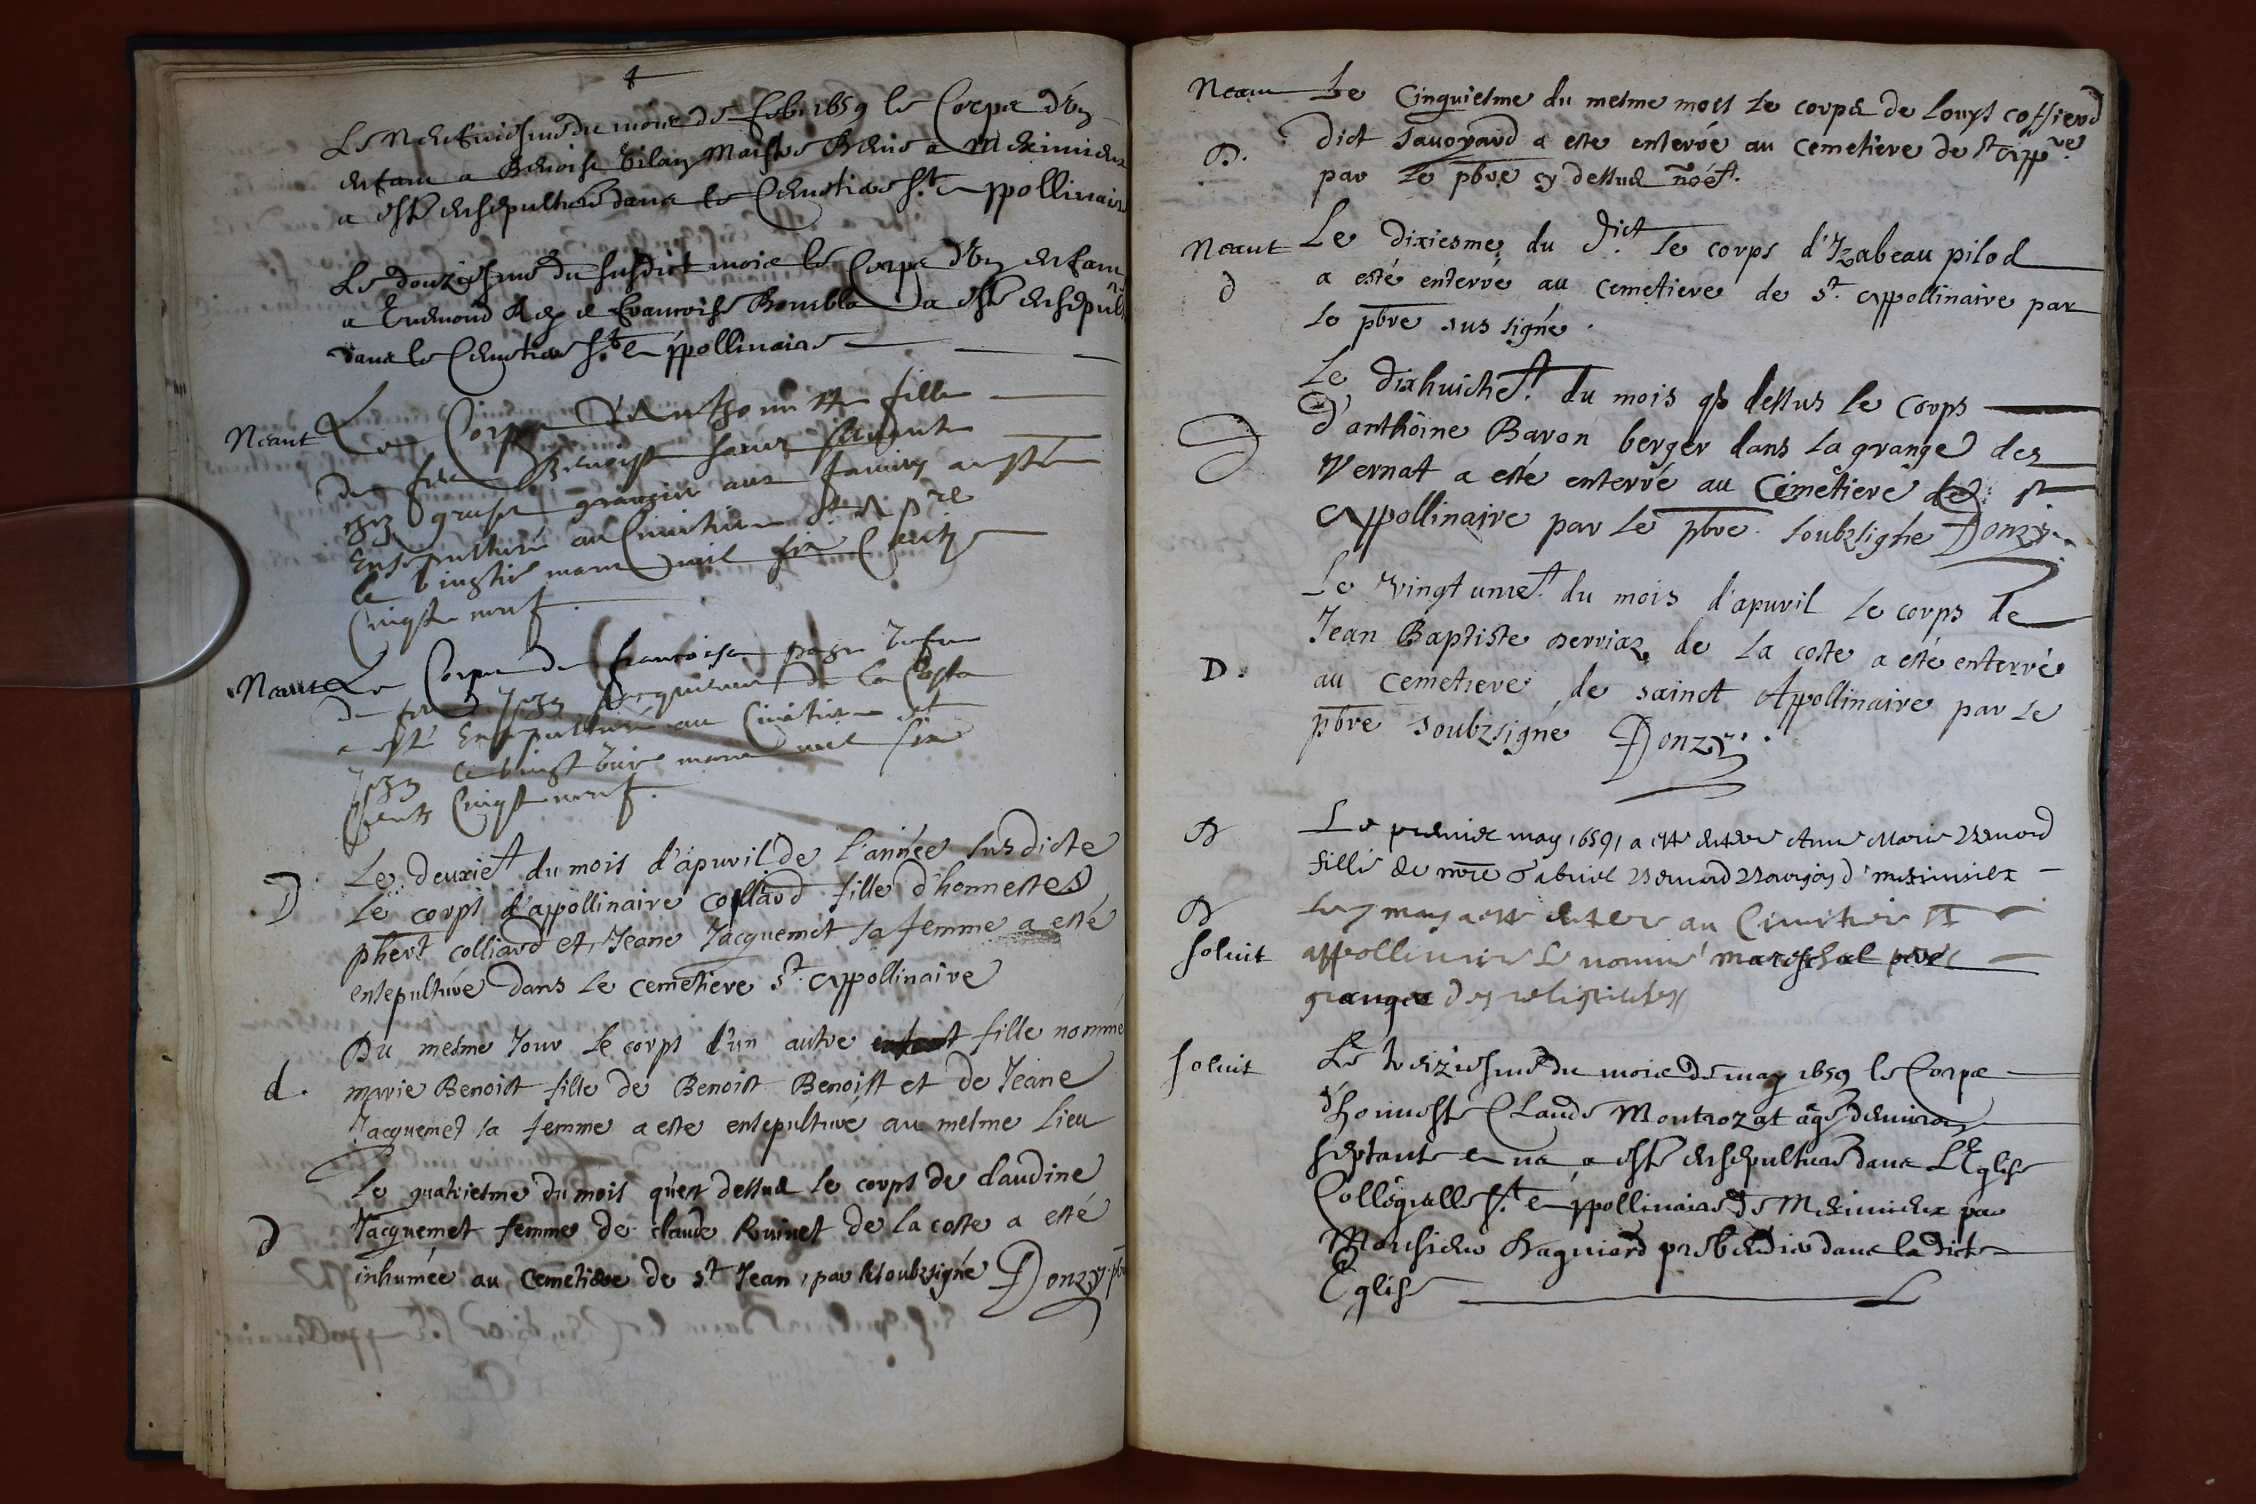 Le neufviesme du mois de feb. 1659 le Corps d'un
enfant a Benoist Maistre a Meximieux
a esté ensepulturé dans le Cemetiere St. Appollinaire
Le douziesme du susdict mois le Corps d'un enfant
a et Francoise a esté ensepult
dans le Cemetiere St. Appollinaire
Neant Le Corps d'Anthonnette fille
de feu Benoist
chez grangier aux a esté
Ensepulturé au Cimetiere St. App.re
le vingtie mars mil six Cents
Cinqte neuf.
Neant Le Corps de francoise
de feu Jacquemet de la Coste
a esté Ensepulturé au Cimetiere st
Jean le vingt mars mil six
Cents Cinqte neuf.
Le deuxiet du mois d'apuril de l'année susdicte
D Le corps d'appollinaire colliard fille d'honnestes
phert colliard et Jeane Jacquemet sa femme a esté
ensepulturé dans le cemetiere St. Appollinaire
Du mesme Jour le corps d'un autre enfant fille nommé
d. marie Benoist fille de Benoist Benoist et de Jeane
Jacquemet sa femme a esté ensepulturé au mesme lieu
Le quatriesme du mois qu'est dessus le corps de claudine
d Jacquemet femme de claude Ruinet de la coste a esté
inhumée au cemetiere de st Jean, par le soubzsigné Donzy pb
Neant Le Cinquiesme du mesme mois le corps de Louys coffierd
D. dict savoyard a esté enterré au cemetiere de st App.re
par le pbre cy dessus
Neant Le dixiesme du dict. le corps d'Izabeau pilod
d a esté enterré au cemetiere de St. Appollinaire par
le pbre sus signé.
Le dixhuicht. du mois dessus le corps
D d'anthoine Baron berger dans la grange des
Vernat a esté enterré au Cimetiere de st
Appollinaire par le pbre. soubzsigne Donzy.
Le vingt unie.t du mois d'apuril le corps de
Jean Baptiste serviaz de la coste a esté enterré
D. au cemetiere de sainct Appollinaire par le
pbre soubzsigné Donzy.
D Le premier may 1659 a esté enterré Anne Marie Bernard
fille de mre Gabriel Bernard Bourgois d'meximieux
D Le 7 may a esté enterré au Cimetiere St
soluit appollinaire le nommé mareschal
granger des religieuses
soluit Le treiziesme du mois de may 1659 le Corps
d'honneste Claude Montrozat agé d'environ
septante ans a esté ensepulturé dans L'Eglise
Collegialle St. Appollinaire de Meximieux par
Monsieur Bagniard prebendier dans ladicte
Eglise